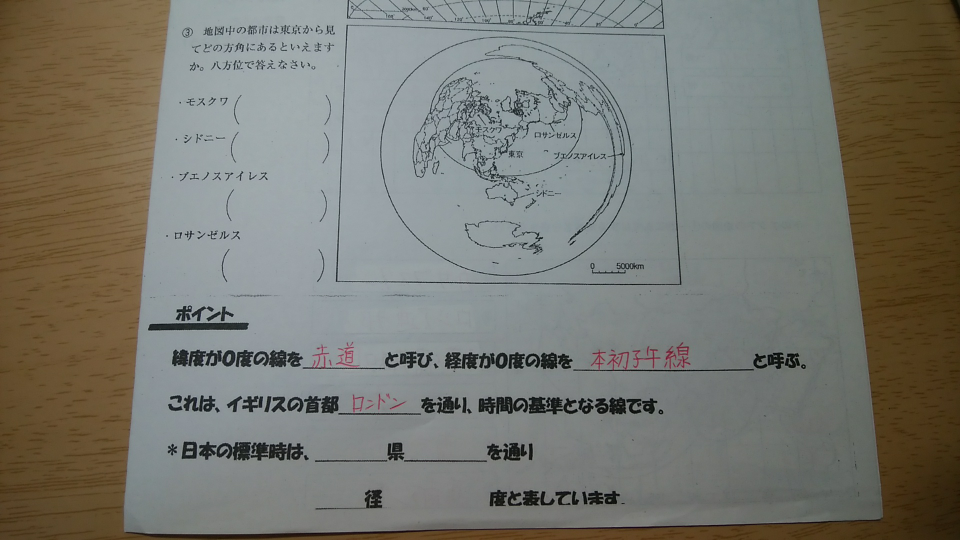 ③ 地図中の都市は東京から見
てどの方角にあるといえます
か。八方位で答えなさい。
・モスクワ（　　　）
・シドニー（　　　）
・ブエノスアイレス
（　　　）
・ロサンゼルス
（　　　）
モスクワ
ロサンゼルス
東京
ブエノスアイレス
シドニー
0 5000km
ポイント
緯度が0度の線を 赤道 と呼び、経度が0度の線を 本初子午線 と呼ぶ。
これは、イギリスの首都 ロンドン を通り、時間の基準となる線です。
＊日本の標準時は、______県______を通り
____径 度と表しています